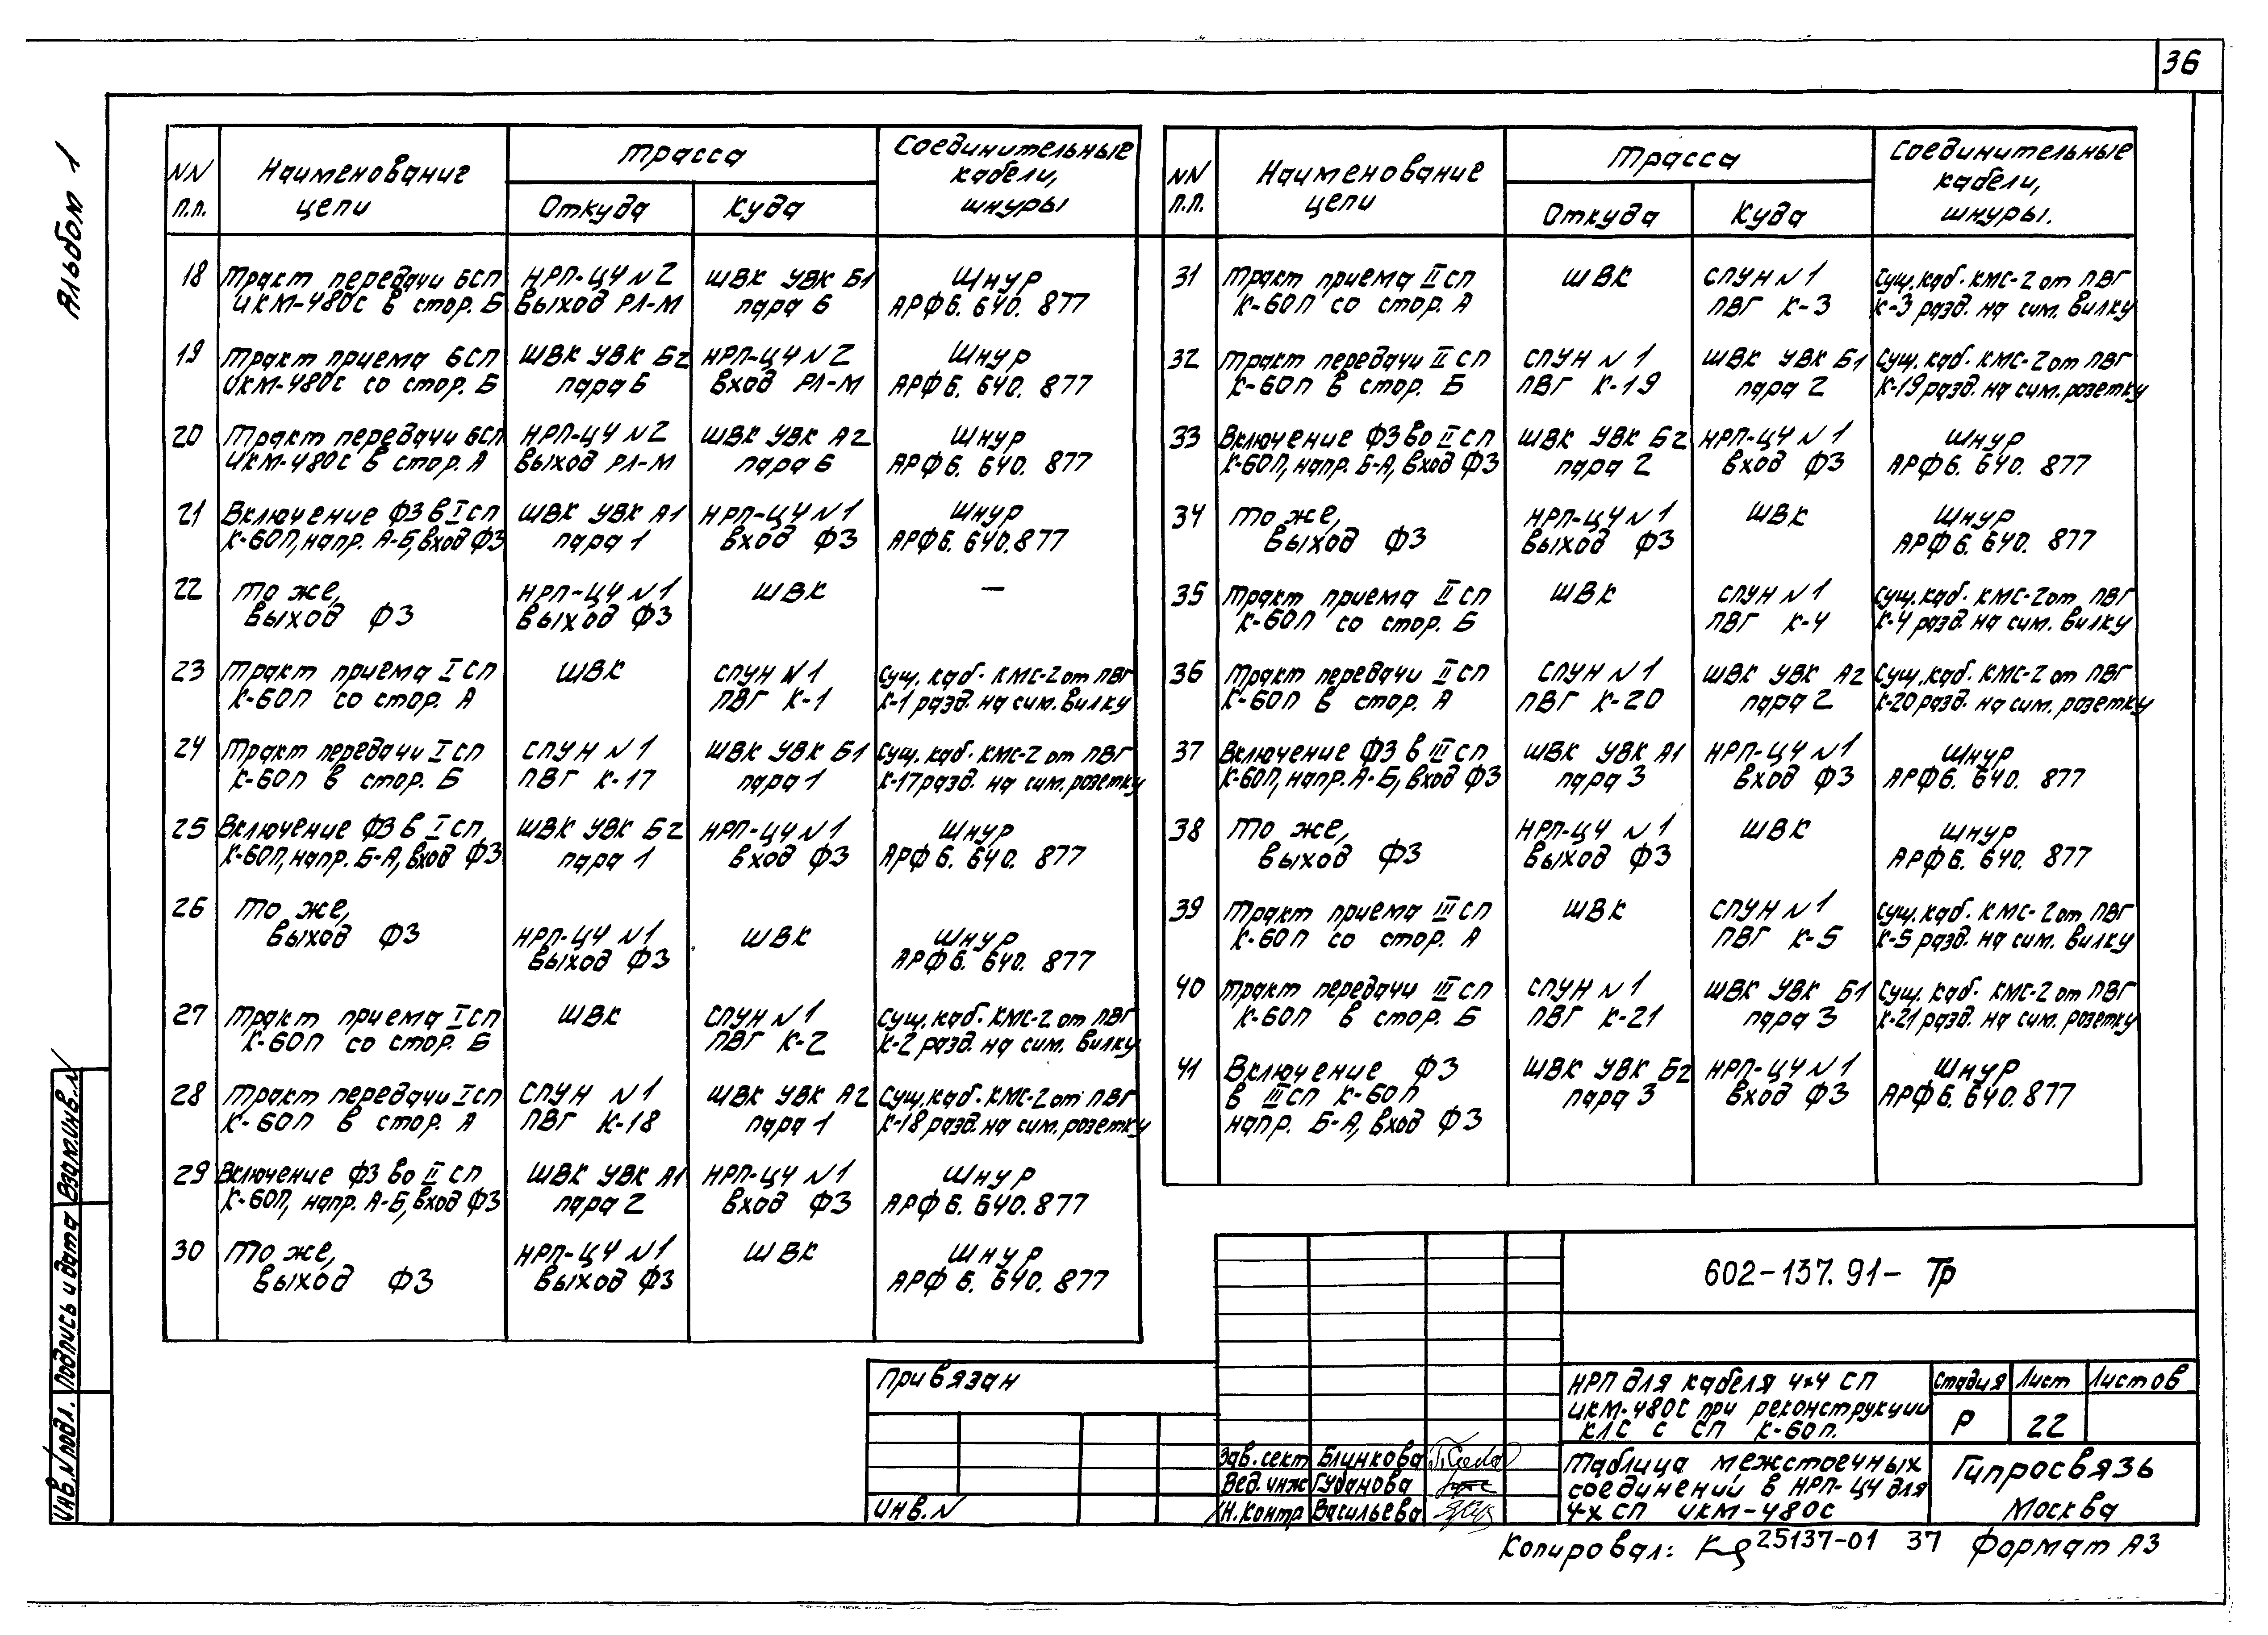 36
Альбом 1
NN п.п. Наименование цепи Трасса Соединительные кабели, шнуры
Откуда Куда
18 Тракт передачи 6СП НРП-Ц4 N2 ШВК УВК Б1 Шнур
ИКМ-480С в стор. Б выход РЛ-М пара 6 АРФ6. 640. 877
19 Тракт приема 6СП ШВК УВК Б2 НРП-Ц4 N2 Шнур
ИКМ-480С со стор. Б пара 6 вход РЛ-М АРФ6. 640. 877
20 Тракт передачи 6СП НРП-Ц4 N2 ШВК УВК А2 Шнур
ИКМ-480С в стор. А выход РЛ-М пара 6 АРФ6. 640. 877
21 Включение ФЗ в I СП ШВК УВК А1 НРП-Ц4 N1 Шнур
К-60П, напр. А-Б, вход ФЗ пара 1 вход ФЗ АРФ6. 640. 877
22 То же, НРП-Ц4 N1 ШВК —
выход ФЗ выход ФЗ
23 Тракт приема I СП ШВК СПУН N1 Сущ. каб. КМС-2 от ПВГ
К-60П со стор. А ПВГ К-1 К-1 разд. на сим. вилку
24 Тракт передачи I СП СПУН N1 ШВК УВК Б1 Сущ. каб. КМС-2 от ПВГ
К-60П в стор. Б ПВГ К-17 пара 1 К-17 разд. на сим. розетку
25 Включение ФЗ в I СП ШВК УВК Б2 НРП-Ц4 N1 Шнур
К-60П, напр. Б-А, вход ФЗ пара 1 вход ФЗ АРФ6. 640. 877
26 То же,
выход ФЗ НРП-Ц4 N1 ШВК Шнур
выход ФЗ АРФ6. 640. 877
27 Тракт приема I СП ШВК СПУН N1 Сущ. каб. КМС-2 от ПВГ
К-60П со стор. Б ПВГ К-2 К-2 разд. на сим. вилку
28 Тракт передачи I СП СПУН N1 ШВК УВК А2 Сущ. каб. КМС-2 от ПВГ
К-60П в стор. А ПВГ К-18 пара 1 К-18 разд. на сим. розетку
29 Включение ФЗ во II СП ШВК УВК А1 НРП-Ц4 N1 Шнур
К-60П, напр. А-Б, вход ФЗ пара 2 вход ФЗ АРФ6. 640. 877
30 То же, НРП-Ц4 N1 ШВК Шнур
выход ФЗ выход ФЗ АРФ6. 640. 877
NN п.п. Наименование цепи Трасса Соединительные кабели, шнуры.
Откуда Куда
31 Тракт приема II СП ШВК СПУН N1 Сущ. каб. КМС-2 от ПВГ
К-60П со стор. А ПВГ К-3 К-3 разд. на сим. вилку
32 Тракт передачи II СП СПУН N1 ШВК УВК Б1 Сущ. каб. КМС-2 от ПВГ
К-60П в стор. Б ПВГ К-19 пара 2 К-19 разд. на сим. розетку
33 Включение ФЗ во II СП ШВК УВК Б2 НРП-Ц4 N1 Шнур
К-60П, напр. Б-А, вход ФЗ пара 2 вход ФЗ АРФ6. 640. 877
34 То же, НРП-Ц4 N1 ШВК Шнур
выход ФЗ выход ФЗ АРФ6. 640. 877
35 Тракт приема II СП ШВК СПУН N1 Сущ. каб. КМС-2 от ПВГ
К-60П со стор. Б ПВГ К-4 К-4 разд. на сим. вилку
36 Тракт передачи II СП СПУН N1 ШВК УВК А2 Сущ. каб. КМС-2 от ПВГ
К-60П в стор. А ПВГ К-20 пара 2 К-20 разд. на сим. розетку
37 Включение ФЗ в III СП ШВК УВК А1 НРП-Ц4 N1 Шнур
К-60П, напр. А-Б, вход ФЗ пара 3 вход ФЗ АРФ6. 640. 877
38 То же, НРП-Ц4 N1 ШВК Шнур
выход ФЗ выход ФЗ АРФ6. 640. 877
39 Тракт приема III СП ШВК СПУН N1 Сущ. каб. КМС-2 от ПВГ
К-60П со стор. А ПВГ К-5 К-5 разд. на сим. вилку
40 Тракт передачи III СП СПУН N1 ШВК УВК Б1 Сущ. каб. КМС-2 от ПВГ
К-60П в стор. Б ПВГ К-21 пара 3 К-21 разд. на сим. розетку
41 Включение ФЗ ШВК УВК Б2 НРП-Ц4 N1 Шнур
в III СП К-60П пара 3 вход ФЗ АРФ6. 640. 877
напр. Б-А, вход ФЗ
602-137.91- Тр
Привязан
Инв. N
НРП для кабеля 4×4 СП
ИКМ-480С при реконструкции
КЛС с СП К-60П.
Стадия Лист Листов
Р 22
Зав. сект Блинкова
Вед. инж Губанова
Н. контр Васильева
Таблица межстоечных
соединений в НРП-Ц4 для
4х СП ИКМ-480С
Гипросвязь
Москва
Копировал: 25137-01 37 Формат А3
Инв. N подл. Подпись и дата Взам. инв. N